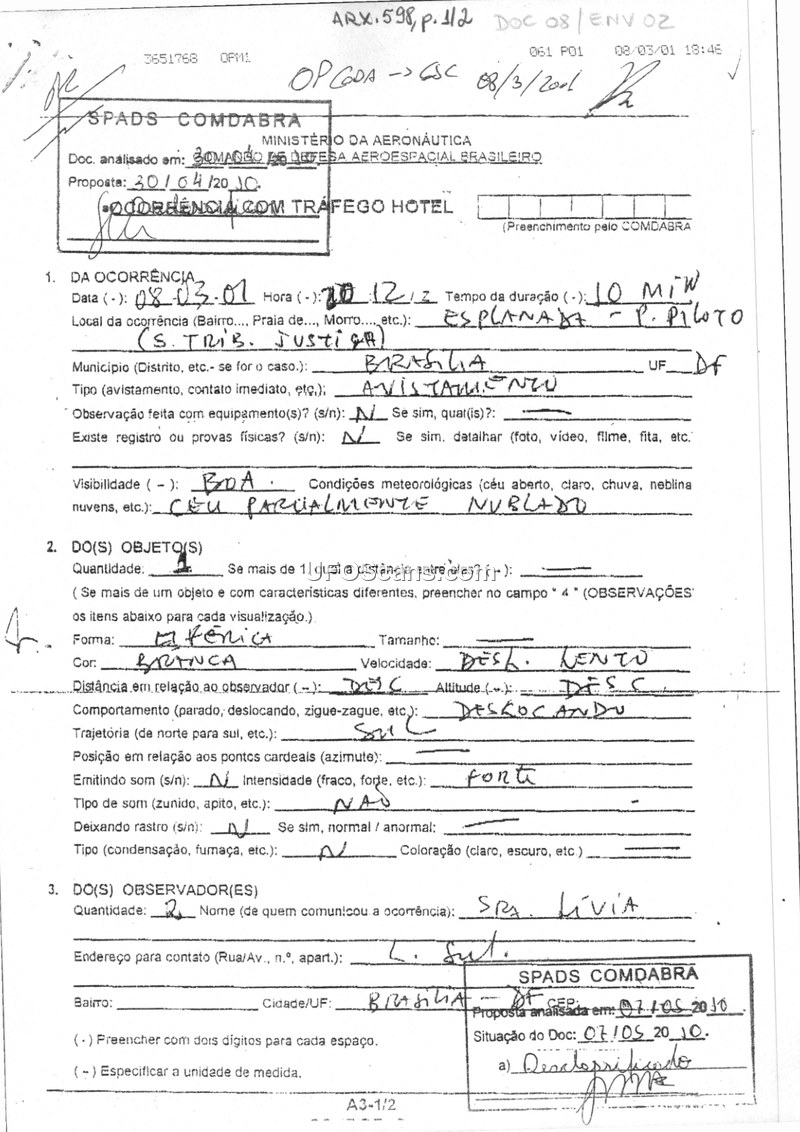 ARX.598, p.1/2 DOC 08/ENV 02
3651768 OPM1 061 P01 08/03/01 18:46
OPCODA → GSC 08/3/2001
SPADS COMDABRA
MINISTÉRIO DA AERONÁUTICA
Doc. analisado em:
COMANDO DE DEFESA AEROESPACIAL BRASILEIRO
Proposta: 30/04/2010.
OCORRÊNCIA COM TRÁFEGO HOTEL
(Preenchimento pelo COMDABRA
1. DA OCORRÊNCIA
Data (-): 08-03-01 Hora (-): 20:12/Z Tempo da duração (-): 10 MIN
Local da ocorrência (Bairro..., Praia de..., Morro..., etc.): ESPLANADA - P. PILOTO
(S. TRIB. JUSTIÇA)
Município (Distrito, etc.- se for o caso.): BRASÍLIA UF DF
Tipo (avistamento, contato imediato, etc,); AVISTAMENTO
Observação feita com equipamento(s)? (s/n): N Se sim, qual(is)?: —
Existe registro ou provas físicas? (s/n): N Se sim, detalhar (foto, vídeo, filme, fita, etc.
Visibilidade ( – ): BOA. Condições meteorológicas (céu aberto, claro, chuva, neblina
nuvens, etc.): CÉU PARCIALMENTE NUBLADO
2. DO(S) OBJETO(S)
Quantidade: 1 Se mais de 1, qual a distância entre eles? ( – ): —
UFOScans.com
( Se mais de um objeto e com características diferentes, preencher no campo " 4 " (OBSERVAÇÕES'
os itens abaixo para cada visualização.)
Forma: ESFÉRICA Tamanho: —
Cor: BRANCA Velocidade: DESL. LENTO
Distância em relação ao observador ( – ): DESC Altitude ( – ): DESC.
Comportamento (parado, deslocando, zigue-zague, etc.): DESLOCANDO
Trajetória (de norte para sul, etc.): SUL
Posição em relação aos pontos cardeais (azimute): —
Emitindo som (s/n): N Intensidade (fraco, forte, etc.): FORTE
Tipo de som (zunido, apito, etc.): NÃO -
Deixando rastro (s/n): N Se sim, normal / anormal: —
Tipo (condensação, fumaça, etc.): N Coloração (claro, escuro, etc.) —
3. DO(S) OBSERVADOR(ES)
Quantidade: 2 Nome (de quem comunicou a ocorrência): SRA. LÍVIA
Endereço para contato (Rua/Av., n.º, apart.): L. Sul.
Bairro: Cidade/UF: BRASÍLIA - DF CEP:
SPADS COMDABRA
Proposta analisada em: 07/05 2010
( - ) Preencher com dois dígitos para cada espaço.
Situação do Doc: 07/05 2010.
a) Desclassificado
( – ) Especificar a unidade de medida.
A3-1/2